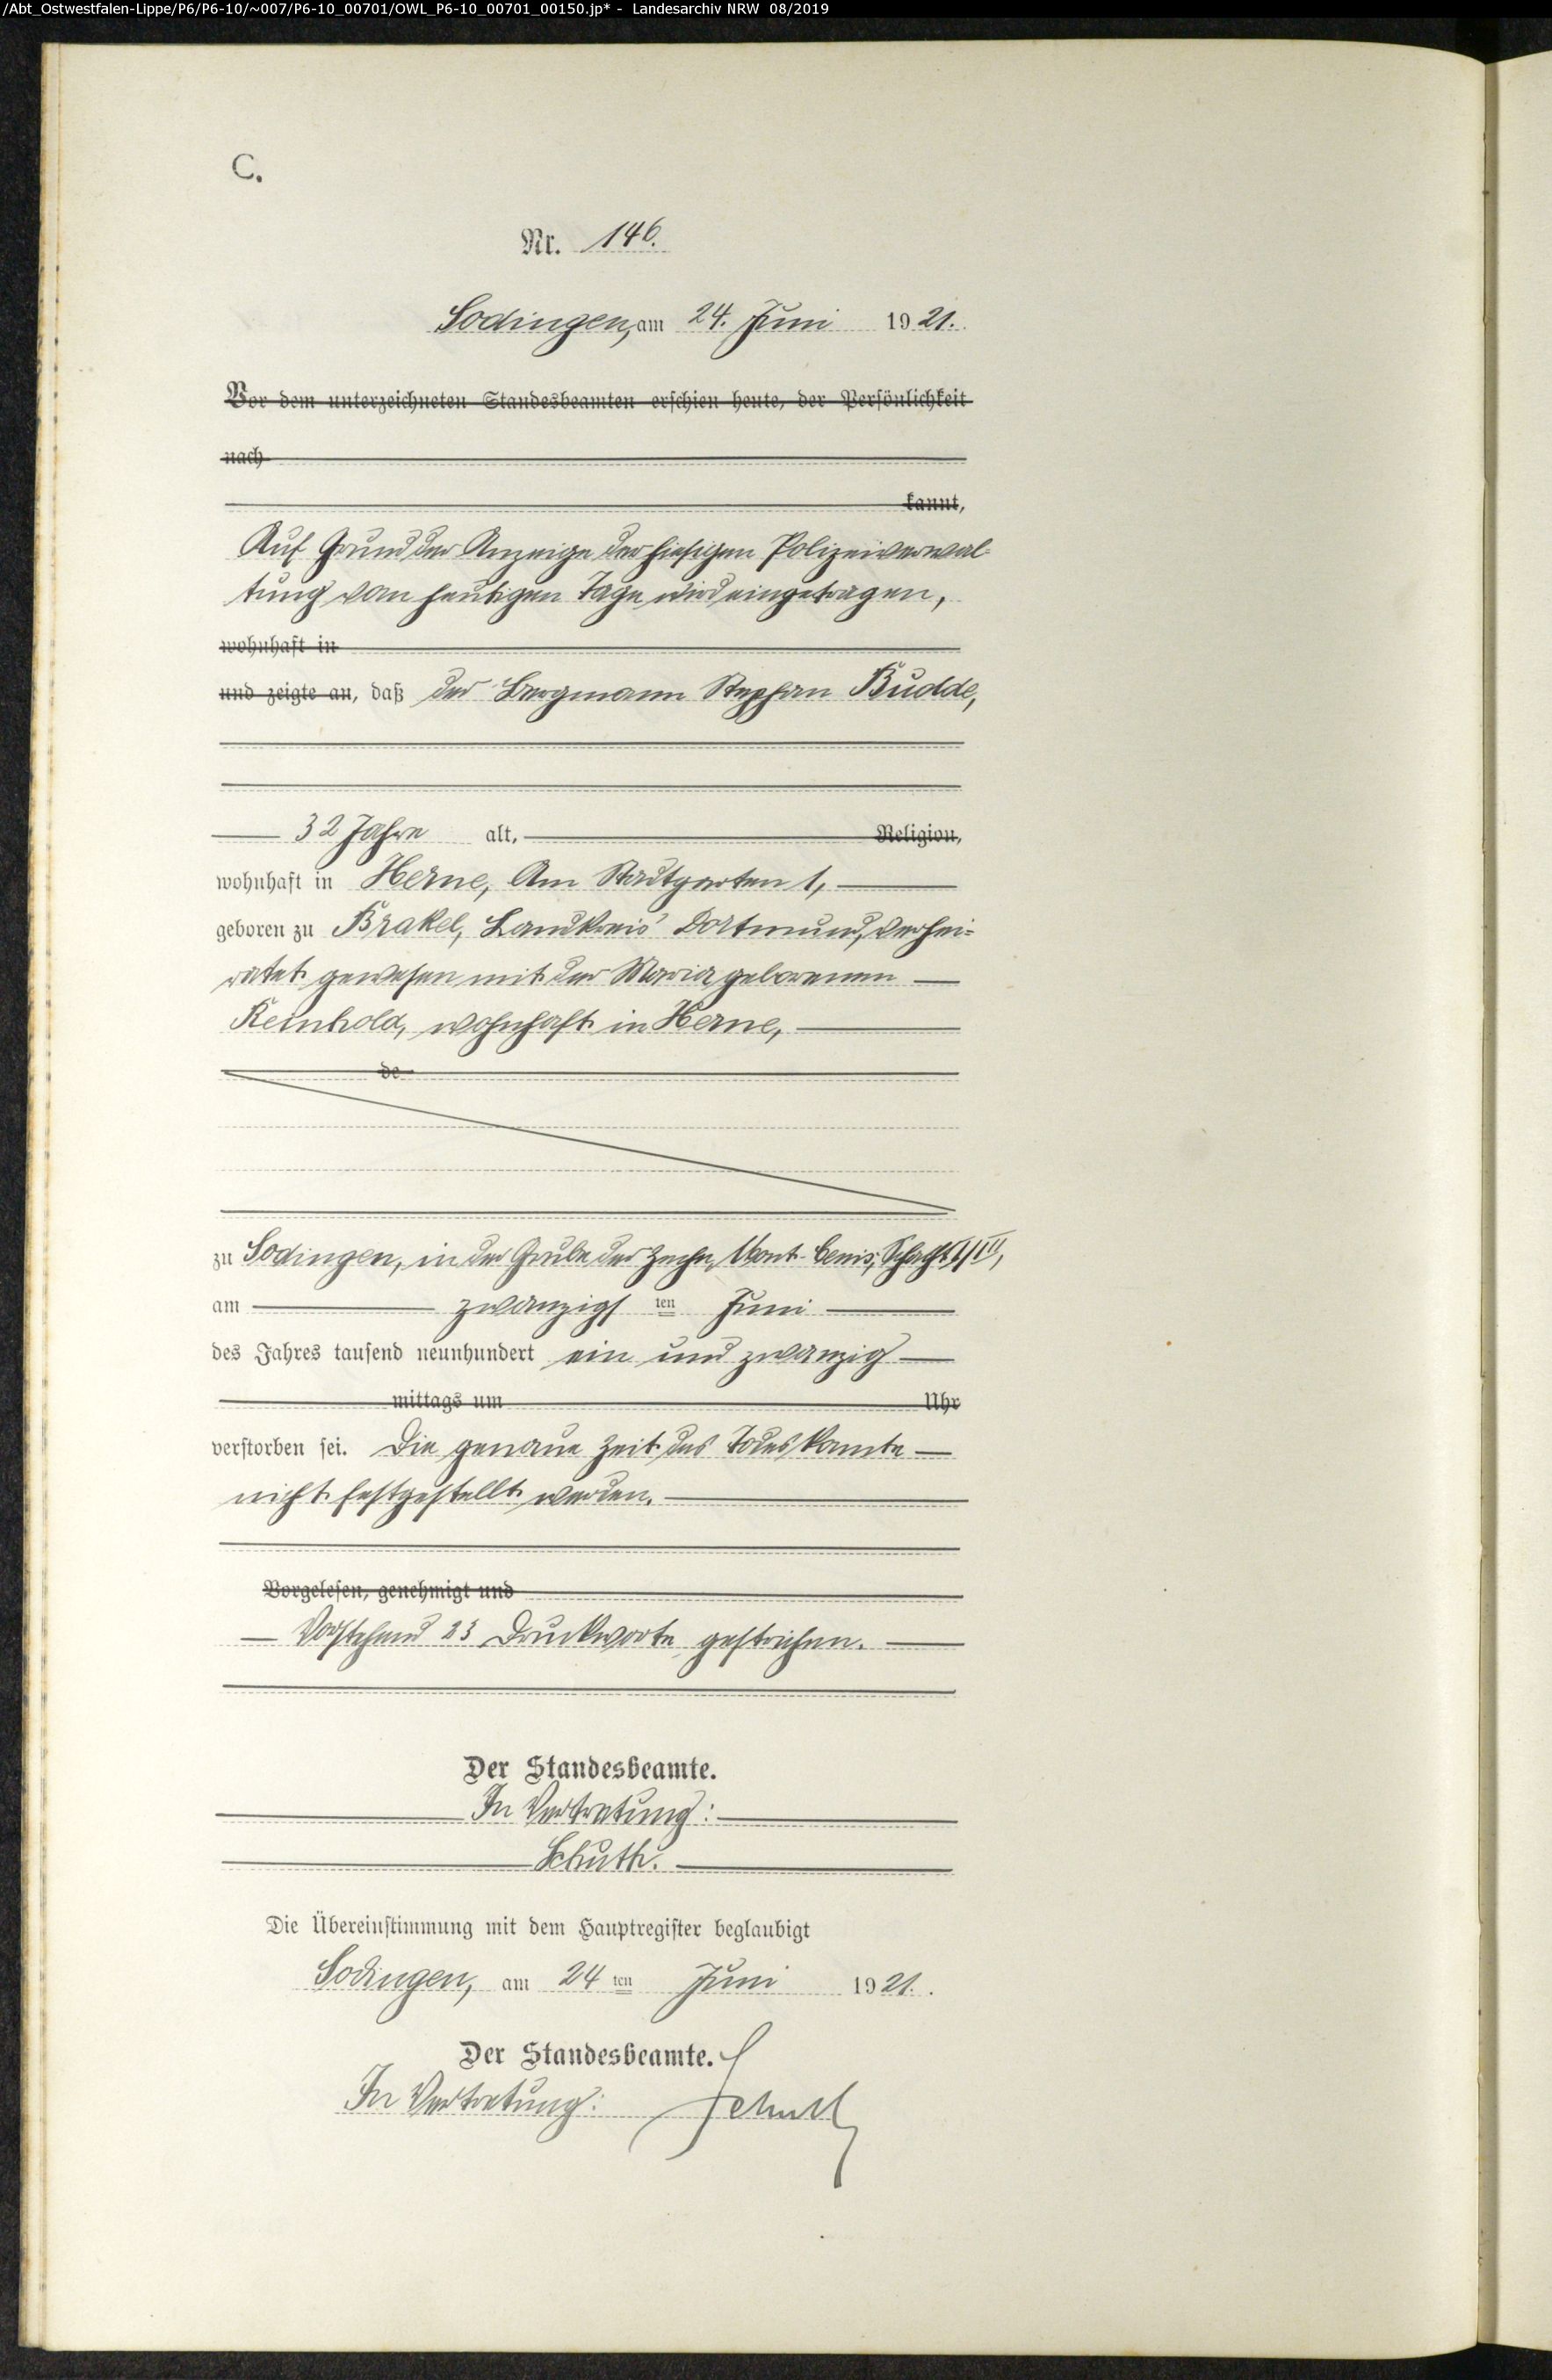 /Abt_Ostwestfalen-Lippe/P6/P6-10/~007/P6-10_00701/OWL_P6-10_00701_00150.jp* - Landesarchiv NRW 08/2019
C.
Nr. 146.
Sodingen, am 24. Juni 1921.
Vor dem unterzeichneten Standesbeamten erschien heute, der Persönlichkeit
nach
kannt,
Auf Grund der Anzeige der hiesigen Polizeiverwal-
tung vom heutigen Tage wird eingetragen,
wohnhaft in
und zeigte an, daß der Bergmann Stephan Budde,
32 Jahre alt, Religion,
wohnhaft in Herne, Am Stadtgarten 1,
geboren zu Brakel, Landkreis Dortmund, verhei-
ratet gewesen mit der Maria geborenen
Reinhold, wohnhaft in Herne,
de
zu Sodingen, in der Grube der Zeche „Mont-Cenis", Schacht I/III,
am zwanzigsten Juni
des Jahres tausend neunhundert ein und zwanzig
mittags um Uhr
verstorben sei. Die genaue Zeit des Todes konnte
nicht festgestellt werden.
Vorgelesen, genehmigt und
Vorstehend 23 Druckworte gestrichen.
Der Standesbeamte.
In Vertretung:
Schuth.
Die Übereinstimmung mit dem Hauptregister beglaubigt
Sodingen, am 24ten Juni 1921.
Der Standesbeamte.
In Vertretung: Schuth